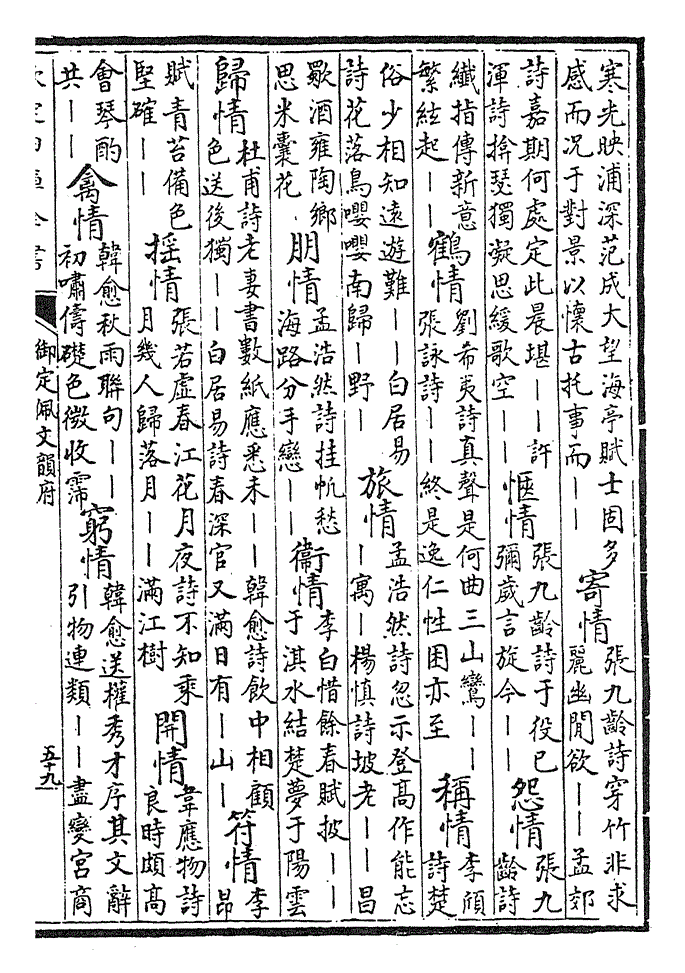 寒光映浦深范成大望海亭賦士固多
感而况于對景以懷古托事而——
寄情
張九齡詩穿竹非求
麗幽閒欲——孟郊
詩嘉期何處定此晨堪——許
渾詩揜瑟獨凝思緩歌空——
愜情
張九齡詩于役已
彌歲言旋今——
怨情
張九
齡詩
纖指傳新意
繁絃起——
鶴情
劉希夷詩真聲是何曲三山鸞——
張詠詩——終是逸仁性困亦至
稱情
李頎
詩楚
俗少相知遠遊難——白居易
詩花落鳥嚶嚶南歸——野—
旅情
孟浩然詩忽示登高作能忘
—寓——楊慎詩坡老——昌
歜酒雍陶鄉
思米囊花
朋情
孟浩然詩挂帆愁
海路分手戀——
衞情
李白惜餘春賦披——
于淇水結楚夢于陽雲
歸情
杜甫詩老妻書數紙應悉未——韓愈詩飲中相顧
色送後獨——白居易詩春深官又滿日有——山—
符情
李
昂
賦青苔備色
堅確——
揺情
張若虛春江花月夜詩不知乘
月幾人歸落月——滿江樹
開情
韋應物詩
良時頗高
會琴酌
共——
禽情
韓愈秋雨聯句——
初嘯儔礎色微收霈
窮情
韓愈送權秀才序其文辭
引物連類——盡變宮商
御定佩文韻府
五十九